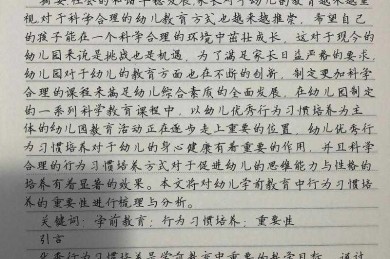 社会的和谐平稳发展,家长对于幼儿的教育越来越重
视,对于科学合理的幼儿教育方式也越来越推崇,希望自己
的孩子能在一个科学合理的环境中茁壮成长,这对于现今的
幼儿园来说是挑战也是机遇,为了满足家长日益严格的要求,
幼儿园对于幼儿的教育方面也在不断的创新,制定更加科学
合理的课程来满足幼儿综合素质的全面发展,在幼儿园制定
的一系列科学教育课程中,以幼儿优秀行为习惯培养为主
体的幼儿园教育活动正在逐步走上重要的位置,幼儿优秀行
为习惯培养对于幼儿的身心健康有着重要的作用,并且科学
合理的行为习惯培养方式对于促进幼儿的思维能力与性格的
培养有着显著的效果。本文将对幼儿学前教育中行为习惯培养
的重要性进行梳理与分析。
关键词:学前教育;行为习惯培养;重要性
引言
行为习惯培养是学前教育中重要的教学目标,通过